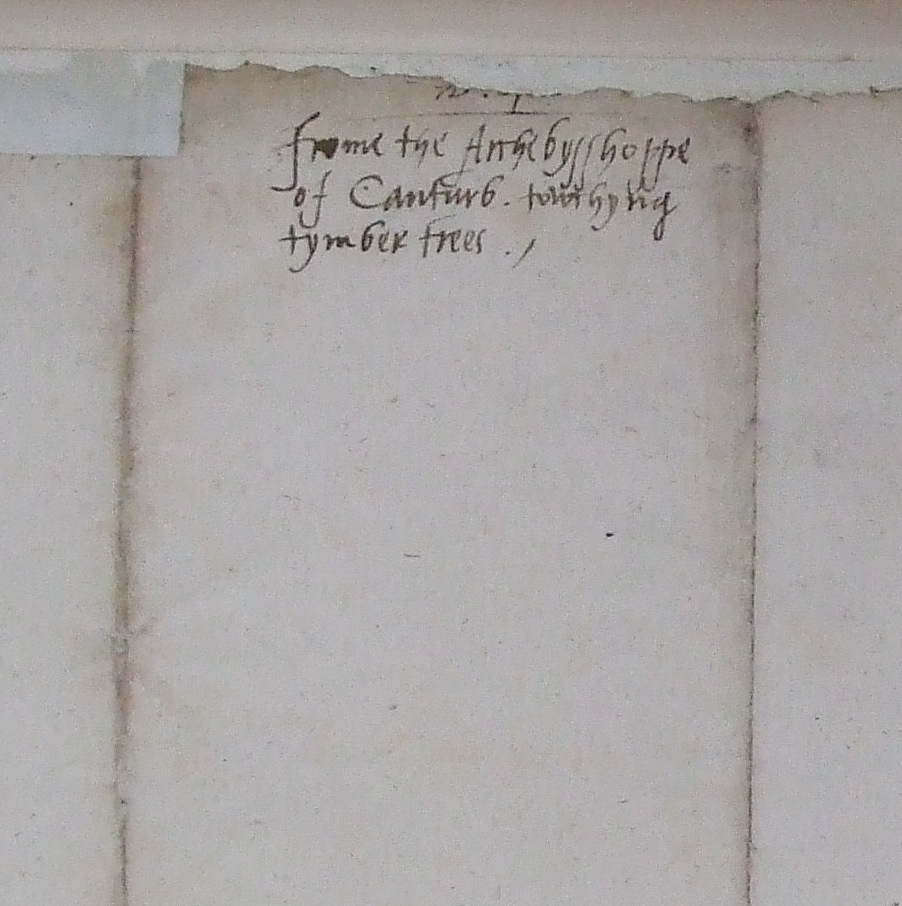 frome the Archebysshoppe
of Canturb. towchyng
tymber trees ./